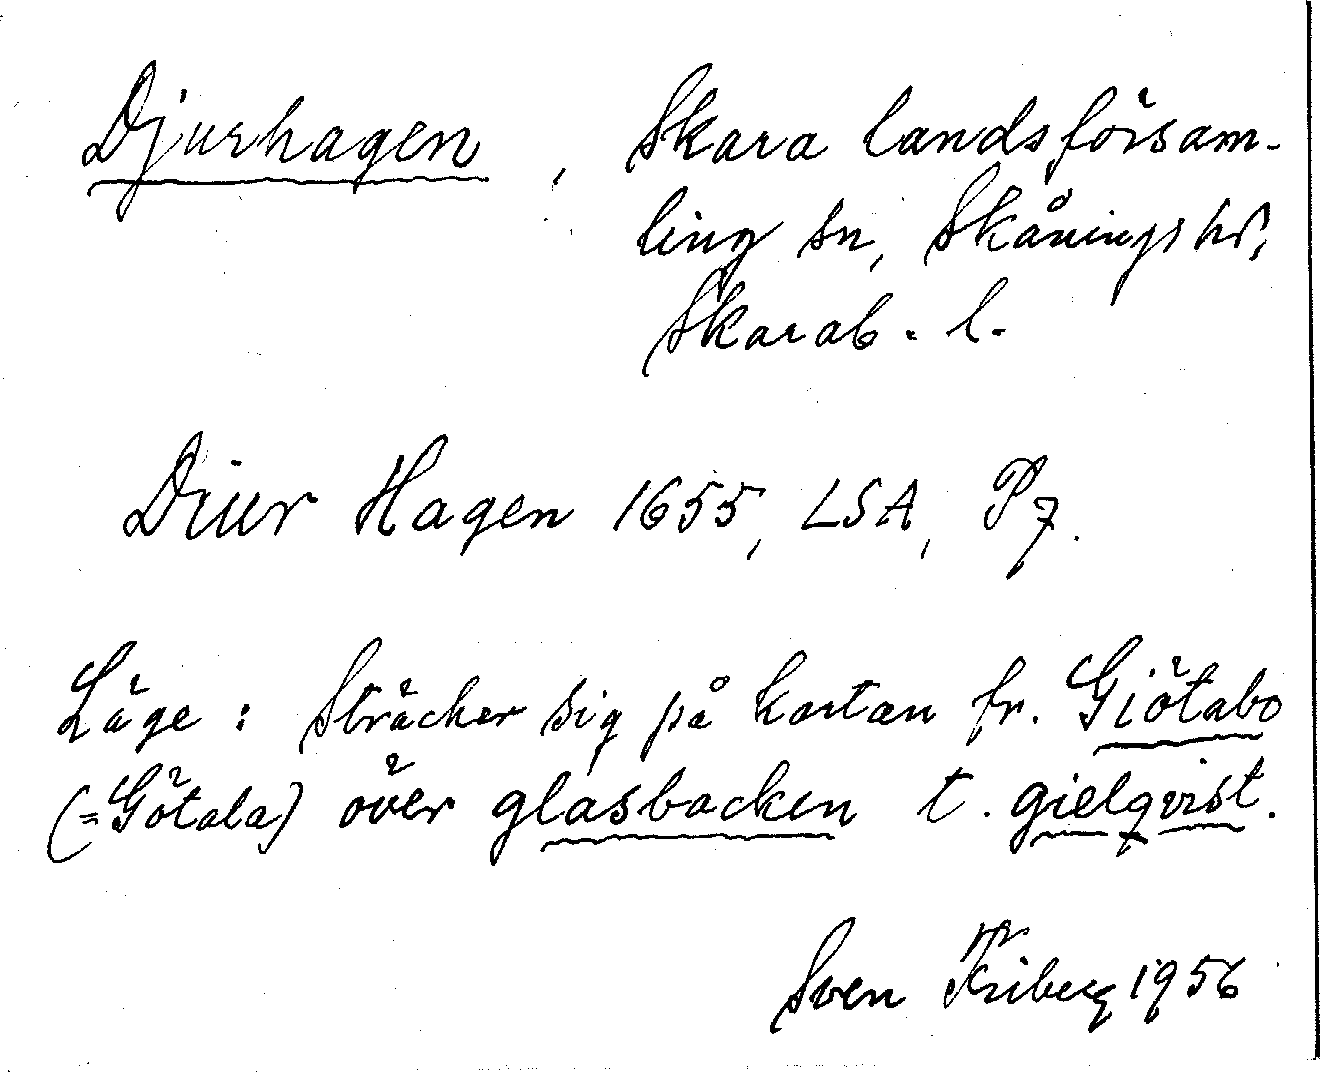 Djurhagen, Skara landsförsam-
ling sn, Skånings hd,
Skarab. l.
Diur Hagen 1655, LSA, P7.
Läge: Sträcker sig på kartan fr. Giötabo
(=Götala) över glasbacken t. gielqvist.
Sven Friberg 1956